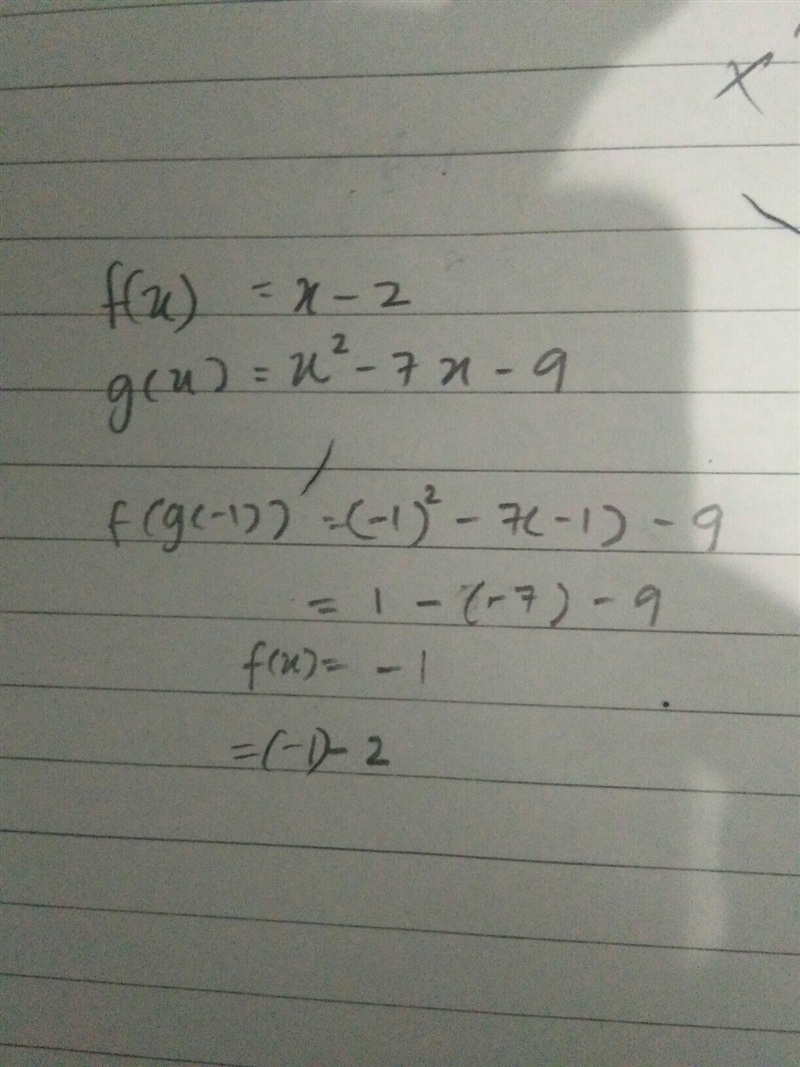 x
f(x) = x - 2
g(x) = x² - 7x - 9
f(g(-1)) = (-1)² - 7(-1) - 9
= 1 - (-7) - 9
f(x) = - 1
= (-1) - 2